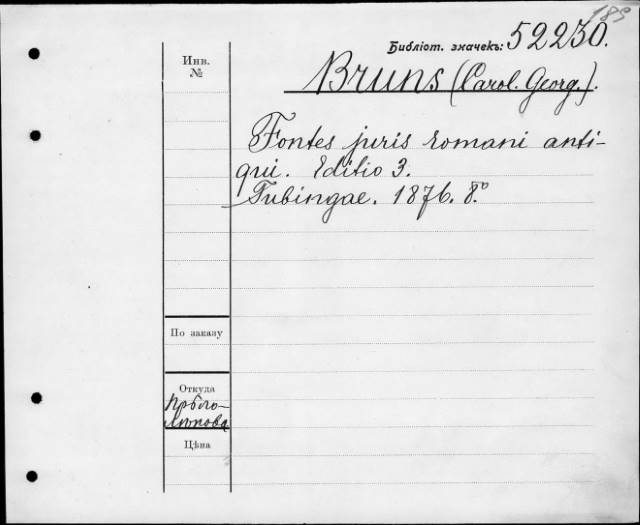 189
Библіот. значекъ: 52230.
Инв.
№
Bruns (Carol. Georg.).
Fontes juris romani anti-
qui. Editio 3.
Tubingae. 1876. 8.º
По заказу
Откуда
Цѣна